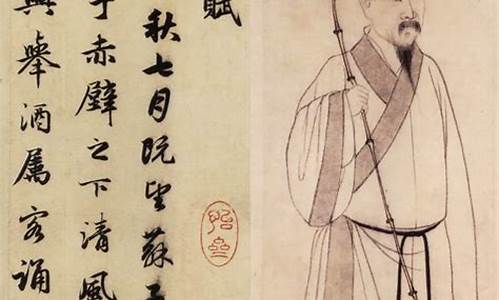 賦
秋七月既望蘇子
于赤壁之下清風
興舉酒屬客誦